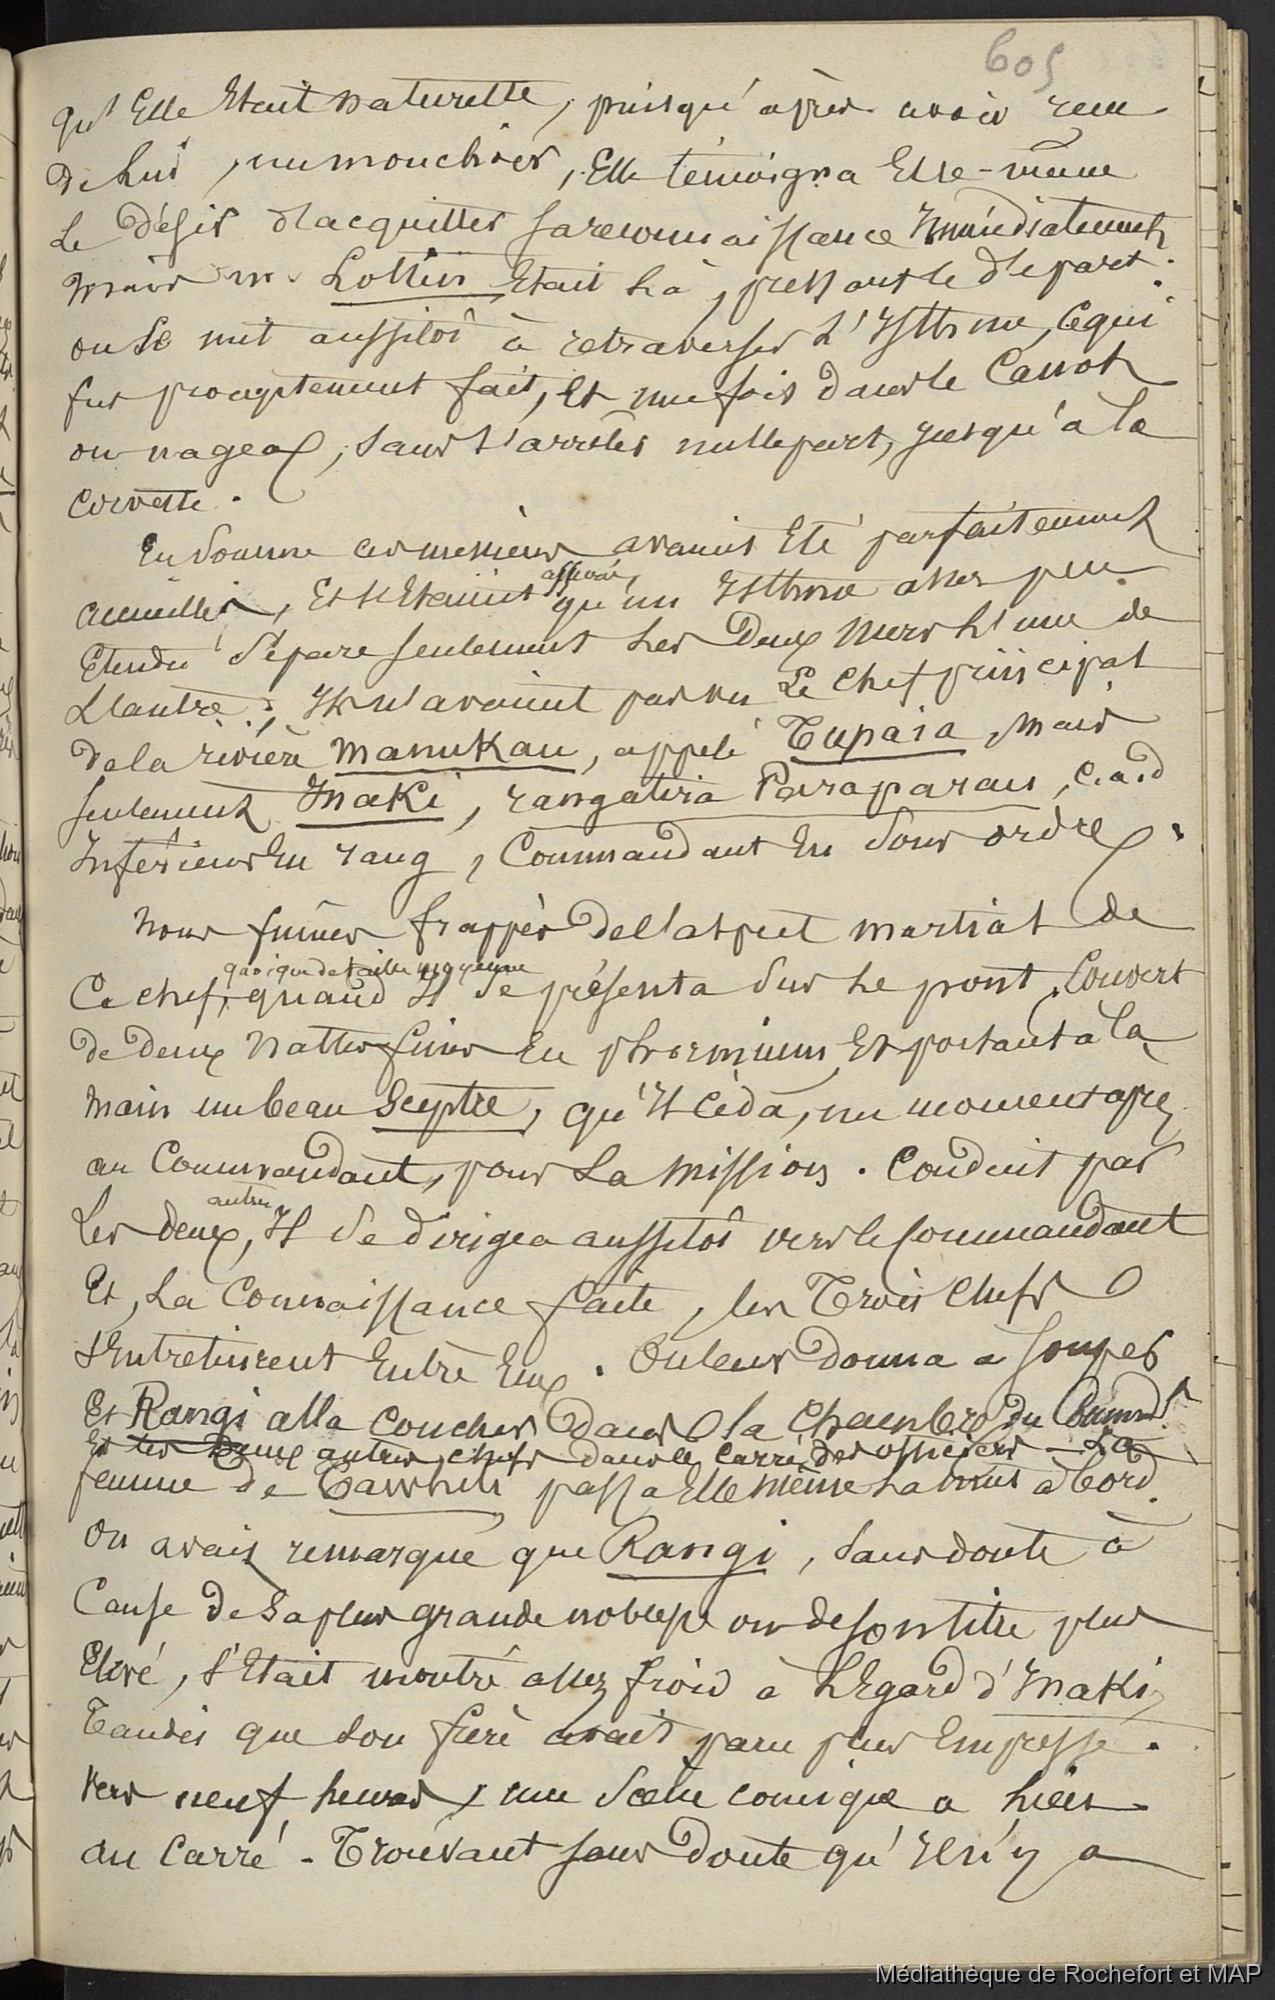 605
qu'Elle Etait naturelle, puisqu'après avoir reçu
de lui, un mouchoir, Elle témoigna Elle-même
Le Désir d'acquitter sa reconnaissance Immédiatement
mais m. Lottin Etait Là, pressant le départ.
on se mit aussitôt à retraverser L'Isthme, ce qui
fut promptement fait, Et une fois dans le Canot
on nagea, sans s'arrêter nulle part, jusqu'à la
corvette.
En somme ces messieurs avaient Eté parfaitement
accueillis, Et s'Etaient assurés, qu'un Isthme assez peu
Etendu sépare seulement Les Deux Mers L'une de
L'autre; Ils n'avaient pas vu Le Chef principal
de la rivière Manukau, appelé Tupaïa, Mais
seulement Inaki, rangatira Paraparau, c.a.d
Inférieur En rang, Commandant En Sous ordre.
Nous fûmes frappés de l'aspect martial de
Ce chef, quoique de taille moyenne quand Il Se présenta Sur Le pont, Couvert
de deux Nattes fines En phormium, Et portant à la
main un beau Sceptre, qu'Il céda, un moment après
au Commandant, pour La Mission. Conduit par
Les deux autres, Il Se dirigea aussitôt vers le Commandant
Et, La Connaissance faite, les Trois Chefs
s'Entretinrent Entre Eux. On leur donna à souper
Et Rangi alla coucher Dans la Chambre du Command.t
Et les Deux autres chefs dans le Carré des officiers - La
femme de Tawhiti passa Elle même La nuit à bord.
On avait remarqué que Rangi, sans doute à
Cause de Sa plus grande noblesse ou de son titre plus
Elevé, s'Etait montré assez froid à L'Egard d'Inaki,
Tandis que son frère avait paru plus Empressé.
Vers neuf heures, une Scène comique a lieu
au Carré - Trouvant sans Doute qu'Il n'y a
Médiathèque de Rochefort et MAP